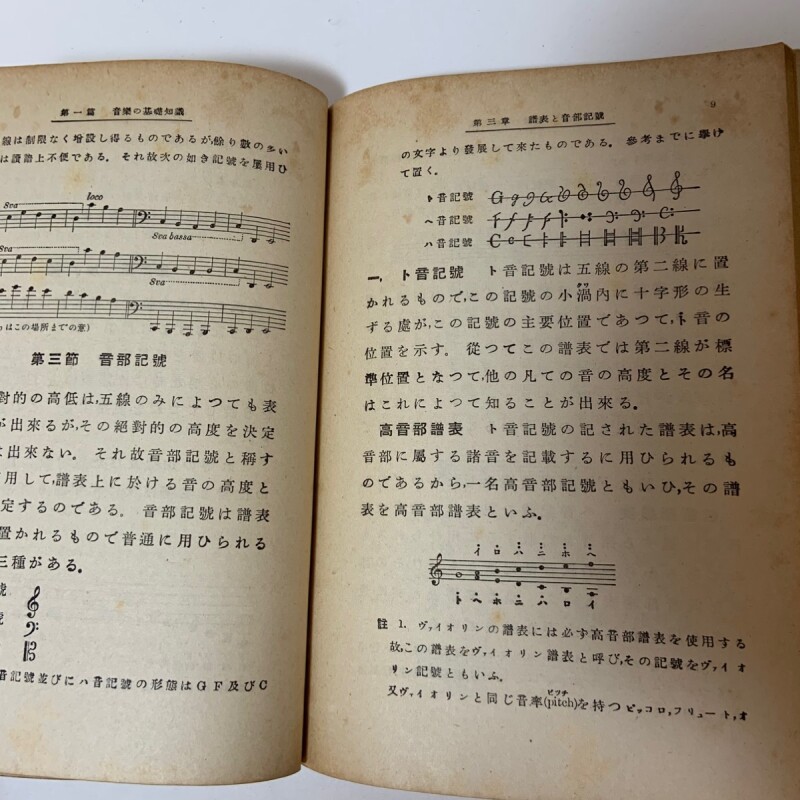 第一篇 音樂の基礎知識
線は制限なく增設し得るものであるが,餘り數の多い
は讀譜上不便である。それ故次の如き記號を屢用ひ
8va
loco
8va bassa
8va
8va
はこの場所までの意)
第三節 音部記號
對的の高低は,五線のみによつても表
が出來るが,その絕對的の高度を決定
は出來ない。それ故音部記號と稱す
用して,譜表上に於ける音の高度と
定するのである。音部記號は譜表
置かれるもので普通に用ひられる
三種がある。
號
號
音記號並びにハ音記號の形態はGF及びC
第三章 譜表と音部記號 9
の文字より發展して來たものである。參考までに擧け
て置く。
ト音記號
ヘ音記號
ハ音記號
一,ト音記號 ト音記號は五線の第二線に置
かれるもので,この記號の小渦內に十字形の生
ずる處が,この記號の主要位置であつて,ト音の
位置を示す。從つてこの譜表では第二線が標
準位置となつて,他の凡ての音の高度とその名
はこれによつて知ることが出來る。
高音部譜表 ト音記號の記された譜表は,高
音部に屬する諸音を記載するに用ひられるも
のであるから,一名高音部記號ともいひ,その譜
表を高音部譜表といふ。
イ ロ ハ ニ ホ ヘ
ト ヘ ホ ニ ハ ロ イ
註 1. ヴァイオリンの譜表には必ず高音部譜表を使用する
故,この譜表をヴァイオリン譜表と呼び,その記號をヴァイオ
リン記號ともいふ。
又ヴァイオリンと同じ音率(pitch)を持つピッコロ,フリュート,オ